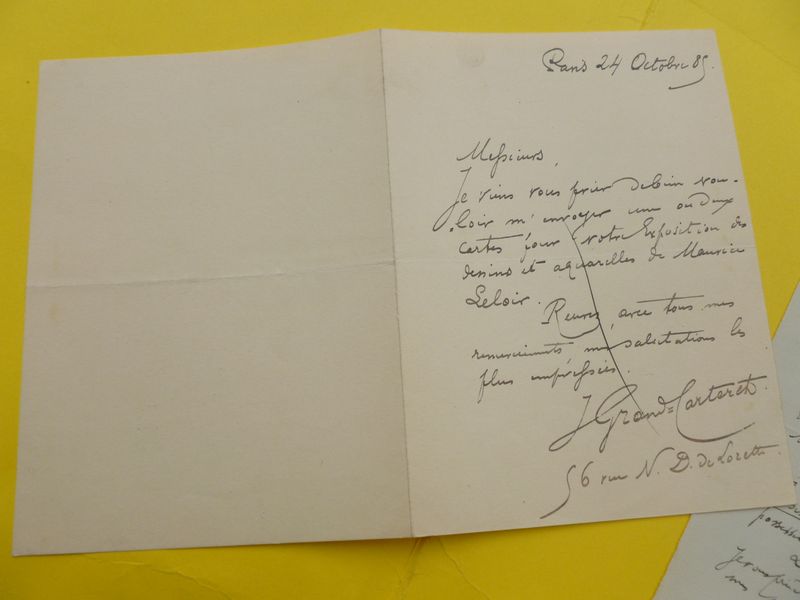 Paris 24 Octobre 85.
Messieurs,
Je viens vous prier de bien vou-
loir m'envoyer une ou deux
cartes pour votre Exposition des
dessins et aquarelles de Maurice
Leloir.
Recevez, avec tous mes
remerciments, mes salutations les
plus empressées.
J Grand=Carteret.
56 rue N. D. de Lorette.